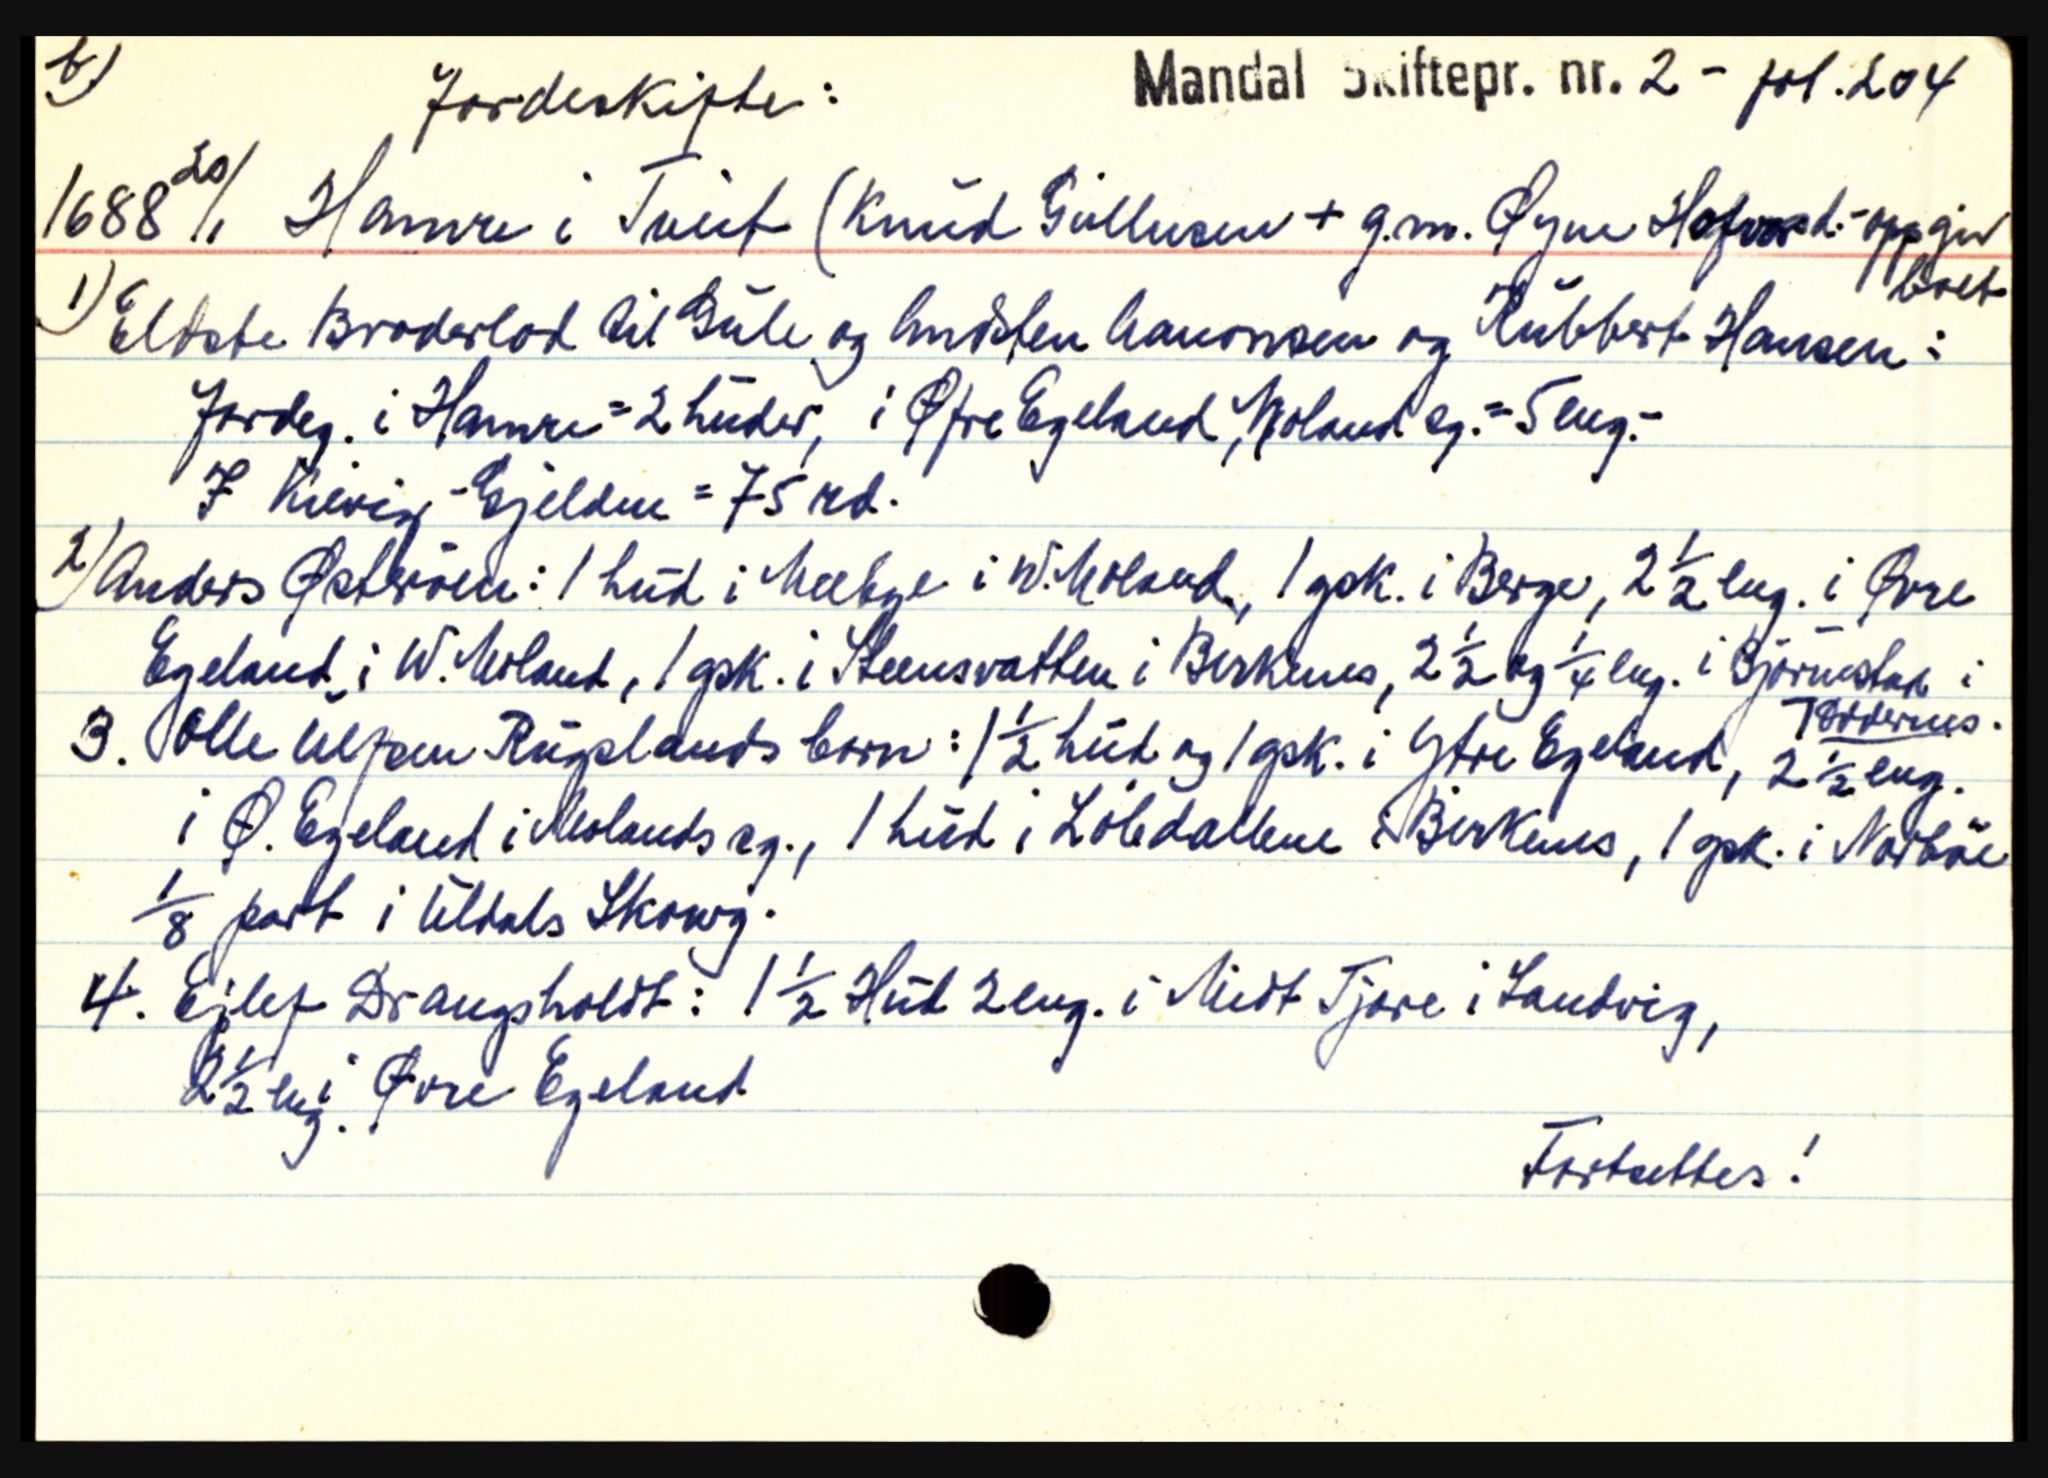 b)
Jordeskifte: Mandal Skiftepr. nr. 2 - fol. 204
1688 20/1 Hamre i Tveit (Knud Gullusen + g.m. Øyne Hofvards d. - oppgiv boet
1) Eldste Broderlod til Gule og Anosten Aanonsen og Rubbert Hansen:
Jordeg. i Hamre = 2 huder, i Øfre Egeland, Moland sg. = 5 eng. -
I Kievig - Gjelden = 75 rd.
2) Anders Østeröen: 1 hud i Meebye i W. Moland, 1 gsk. i Berge, 2 1/2 eng. i Øvre
Egeland i W. Moland, 1 gsk. i Steensvatten i Birkenes, 2 1/2 og 1/4 eng. i Björnstad i
Tordernes.
3. Olle Ulfsen Rugslands born: 1 1/2 hud og 1 gsk. i Ytre Egeland, 2 1/2 eng.
i Ø. Egeland i Molands sg., 1 hud i Löbdallene i Birkenes, 1 gsk. i Norböe
1/8 part i Uldals Skowg.
4. Ejlef Drangsholdt: 1 1/2 Hud 2 eng. i Midt Tjore i Landvig,
2 1/2 eng. i Øvre Egeland
Fortsettes!